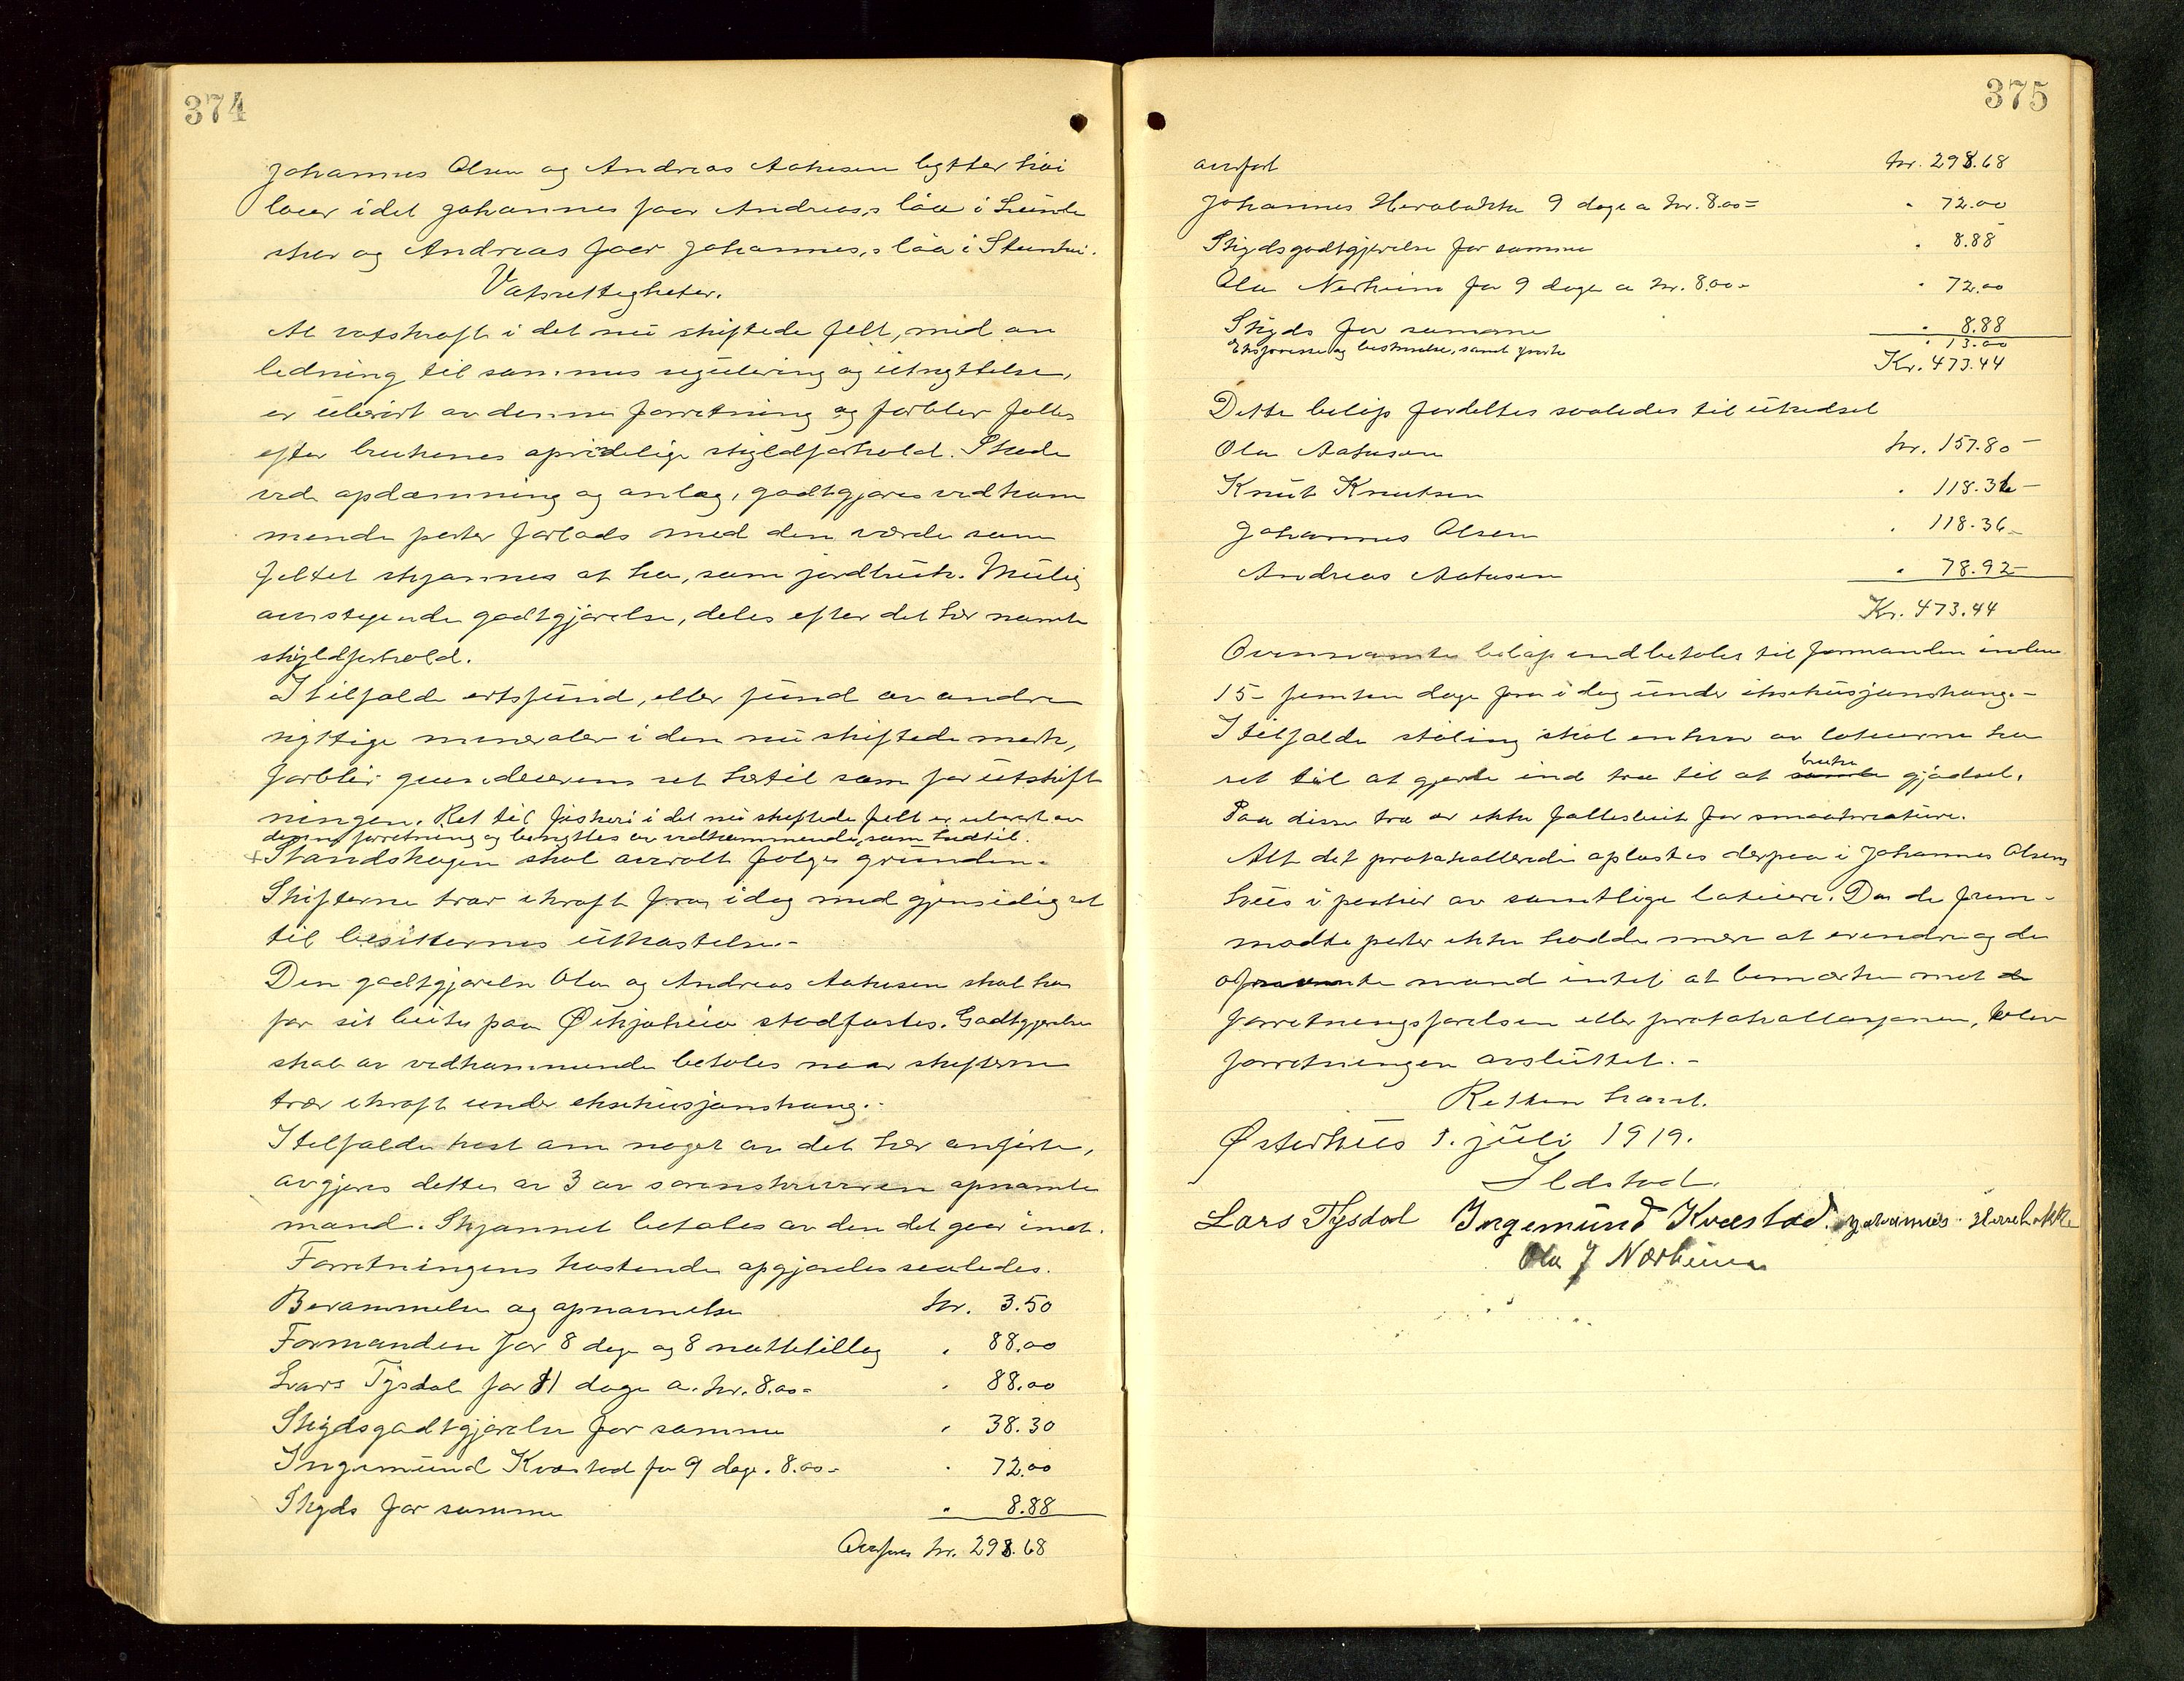 374
Johannes Olsen og Andreas Aakesen bytter höi
löer idet Johannes faar Andreas,s löa i
og Andreas faar Johannes,s löa i
Vatsrettigheter.
Al vatskraft i det nu skiftede felt, med an
ledning til sammes regulering og utnyttelse,
er uberört av denne forretning og forblir fælles
efter brukenes oprindelige skyldforhold. Skade
ved opdæmning og anlæg, godtgjøres vedkom
mende parter forlods med den værdi som
feltet skjønnes at ha, som jordbruk. Mulig
overstigende godtgjørelse, deles efter det her nævnte
skyldforhold.
I tilfælde ertsfund, eller fund av andre
nyttige mineraler i den nu skiftede mark,
forblir grundeierens ret hertil som før utskift
ningen. Ret til fiskeri i det nu skiftede felt er uberört av
denne forretning og benyttes av vedkommende, som hertil.
+ Standskogen skal overalt følge grunden.
Skifterne trær ikraft fra idag med gjensidig ret
til besitternes utkastelse.-
Den godtgjørelse Ola og Andreas Aakesen skal ha
for sit beite paa stadfæstes. Godtgjørelsen
skal av vedkommende betales naar skifterne
trær ikraft under eksekusjonstvang.-
I tilfælde tvist om noget av det her anførte,
avgjøres dette av 3 av sorenskriveren opnævnte
mænd. Skjønnet betales av den det gaar imot.
Forretningens kostende opgjordes saaledes.
Berammelse og opnævnelse kr. 3.50
Formanden for 8 dage og 8 nattetillæg " 88.00
Lars Tysdal for 11 dage a. kr. 8.00= " 88.00
Skydsgodtgjørelse for samme " 38.30
Ingemund Kvæstad for 9 dage. 8.00= " 72.00
Skyds for samme " 8.88
Overføres kr. 298.68
375
overført kr. 298.68
Johannes Herabakka 9 dage a kr. 8.00= " 72.00
Skydsgodtgjørelse for samme " 8.88
Ola Nerheim for 9 dage a kr. 8.00= " 72.00
Skyds for samme " 8.88
og beskrivelse, samt porto " 13.00
Kr. 473.44
Dette beløp fordeltes saaledes til utredsel
Ola Aakesen kr. 157.80
Knut Knutsen " 118.36
Johannes Olsen " 118.36
Andreas Aakesen " 78.92
Kr. 473.44
Ovennævnte beløp indbetales til formanden inden
15- femten dage fra idag under eksekusjonstvang.-
I tilfælde støling skal enhver av loteierne ha
ret til at gjerde ind træ til at bruke gjødsel.
Paa disse træ er ikke fællesbeit for smaakreature.
Alt det protokollerede oplæstes derpaa i Johannes Olsens
hus i påhør av samtlige loteiere. Da de frem-
mødte parter ikke hadde mere at erindre og de
opnævnte mænd intet at bemerke mot
forretningsførelsen eller protokollasjonen, blev
forretningen avsluttet.-
Retten hævet.
Østerhus 1. juli 1919.
Ildstad.
Lars Tysdal Ingemund Kvæstad. Johannes Herrebakke
Ola J Nærheim